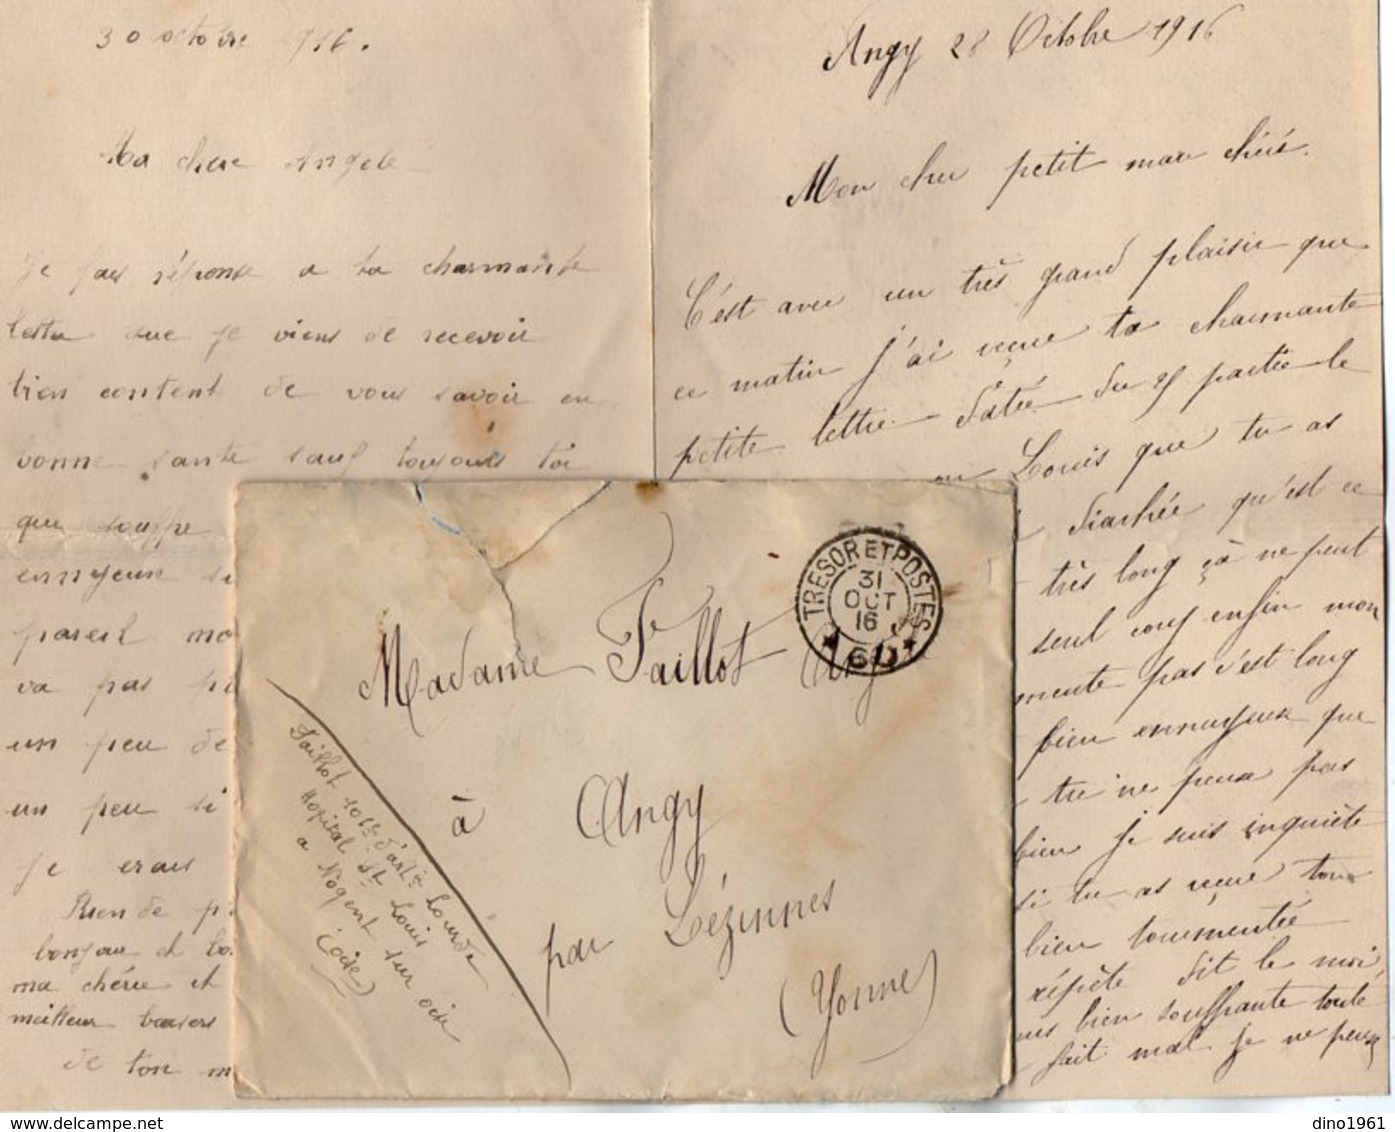 30 octobre 916.
Ma chere Angele
Je fais réponse a ta charmante
lettre que je viens de recevoir
bien content de vous savoir en
bonne sante sauf toujours toi
que souffre
ennuyeux si
pareil mo
va pas
un peu de
un peu si
je
Rien de p
bonjour et bo
ma chérie et
meilleur baisers
de ton m
Angy 28 Octobre 1916
Mon cher petit mari chéri.
C'est avec un très grand plaisir que
ce matin j'ai reçue ta charmante
petite lettre datée du 25 partie le
Louis que tu as
qu'est ce
très long çà ne peut
seul coup enfin mon
mente pas c'est long
bien ennuyeux que
tu ne peux pas
bien je suis inquiète
si tu as reçue tout
bien tourmentée
répète dit le moi
bien souffrante toute
fait mal je ne peux
TRESOR ET POSTES
31
OCT
16
Madame Taillot
à Angy
par Lézinnes
(Yonne)
Taillot 101e d'artie Lourde
Hôpital St Louis
a Nogent sur oise
(oise)
dino1961